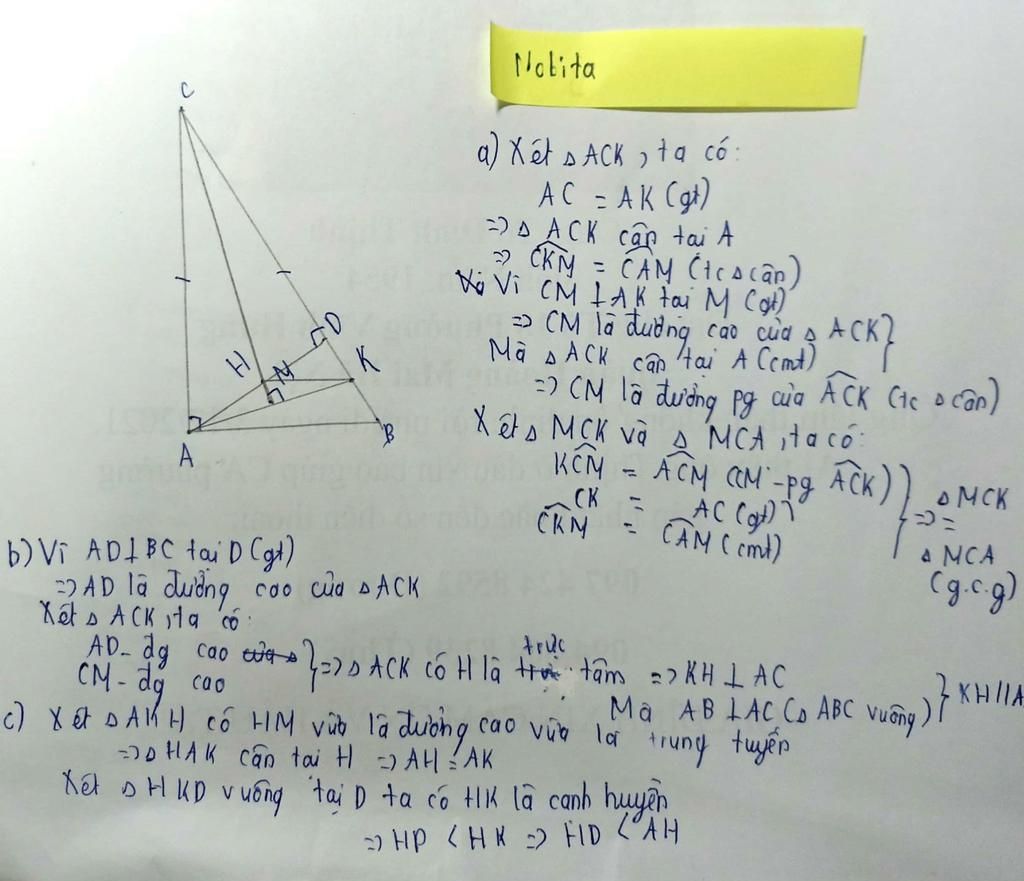 Nobita
C
D
H
M
K
A
B
a) Xét △ ACK, ta có:
AC = AK (gt)
=> △ ACK cân tại A
=> \widehat{CKM} = \widehat{CAM} (tc △ cân)
Vì CM ⊥ AK tại M (gt)
=> CM là đường cao của △ ACK }
Mà △ ACK cân tại A (cmt)
=> CM là đương pg của \widehat{ACK} (tc △ cân)
Xét △ MCK và △ MCA, ta có:
\widehat{KCM} = \widehat{ACM} (CM - pg \widehat{ACK})
CK = AC (gt)
\widehat{CKM} = \widehat{CAM} (cmt)
} => △ MCK = △ MCA (g.c.g)
b) Vì AD ⊥ BC tại D (gt)
=> AD là đường cao của △ ACK
Xét △ ACK, ta có:
AD - đg cao của △
CM - đg cao
} => △ ACK có H là trực tâm => KH ⊥ AC
Mà AB ⊥ AC (△ ABC vuông) } KH // A
c) Xét △ AKH có HM vừa là đường cao vừa là trung tuyến
=> △ HAK cân tại H => AH = AK
Xét △ HKD vuông tại D ta có HK là canh huyền
=> HD < HK => HD < AH